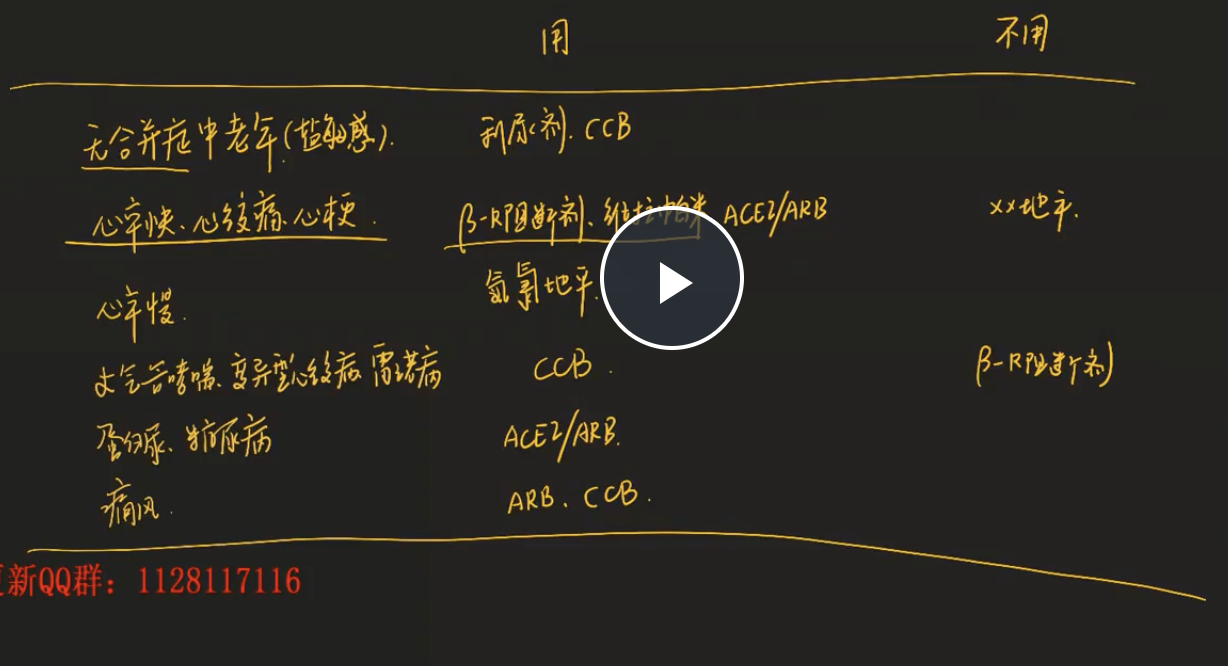 用 不用
无合并症中老年(盐敏感). 利尿剂. CCB
心率快、心绞痛、心梗. β-R阻断剂、维拉帕米 ACEI/ARB xx地平.
心率慢. 氨氯地平.
支气管哮喘、变异型心绞痛、雷诺病 CCB. β-R阻断剂
蛋白尿、糖尿病 ACEI/ARB.
痛风. ARB、CCB.
更新QQ群：1128117116